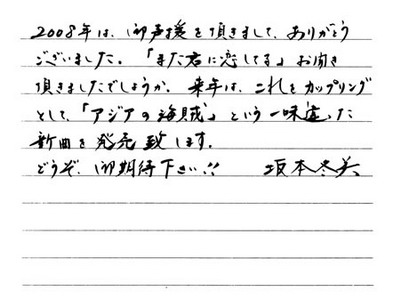 2008年は、御声援を頂きまして、ありがとう
ございました。「また君に恋してる」お聞き
頂きましたでしょうか。来年は、これをカップリング
として、「アジアの海賊」という一味違った
新曲を発売致します。
どうぞ、御期待下さい!! 坂本冬美